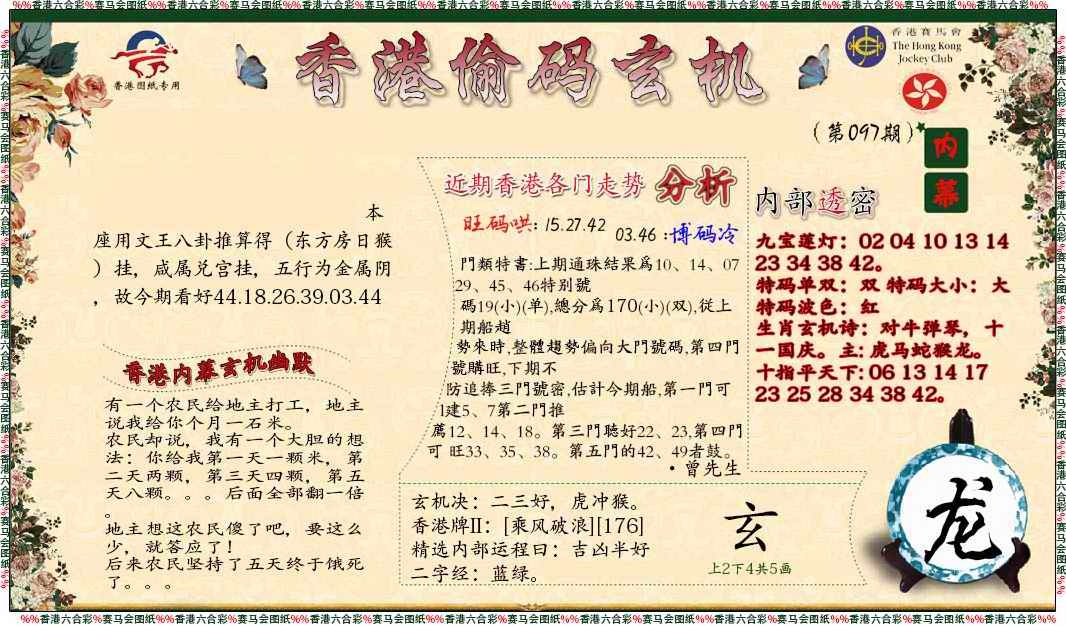 %%香港六合彩%赛马会图纸%%香港六合彩%赛马会图纸%%香港六合彩%赛马会图纸%%香港六合彩%赛马会图纸%%香港六合彩%赛马会图纸%%香港六合彩%赛马会图纸%%香港六合彩%%
香港图纸专用
香港偷码玄机
香港賽馬會
The Hong Kong
Jockey Club
(第097期)
内
幕
本
座用文王八卦推算得(东方房日猴
)挂,咸属兑宫挂,五行为金属阴
,故今期看好44.18.26.39.03.44
香港内幕玄机幽默
有一个农民给地主打工,地主
说我给你个月一石米。
农民却说,我有一个大胆的想
法:你给我第一天一颗米,第
二天两颗,第三天四颗,第五
天八颗。。。后面全部翻一倍
。
地主想这农民傻了吧,要这么
少,就答应了!
后来农民坚持了五天终于饿死
了。。。
近期香港各门走势 分析
旺码哄:15.27.42
03.46:博码冷
門類特書:上期通珠結果爲10、14、07
29、45、46特别號
碼19(小)(单),總分爲170(小)(双),從上
期船趙
勢來時,整體趨勢偏向大門號碼,第四門
號購旺,下期不
防追捧三門號密,估計今期船,第一門可
1建5、7第二門推
薦12、14、18。第三門聽好22、23,第四門
可 旺33、35、38。第五門的42、49者鼓。
·曾先生
玄机决:二三好,虎冲猴。
香港牌II:[乘风破浪][176]
精选内部运程曰:吉凶半好
二字经:蓝绿。
玄
上2下4共5画
内部透密
九宝莲灯:02 04 10 13 14
23 34 38 42。
特码单双:双 特码大小:大
特码波色:红
生肖玄机诗:对牛弹琴,十
一国庆。主:虎马蛇猴龙。
十指平天下:06 13 14 17
23 25 28 34 38 42。
龙
%%香港六合彩%赛马会图纸%%香港六合彩%赛马会图纸%%香港六合彩%赛马会图纸%%香港六合彩%赛马会图纸%%香港六合彩%赛马会图纸%%香港六合彩%赛马会图纸%%香港六合彩%%